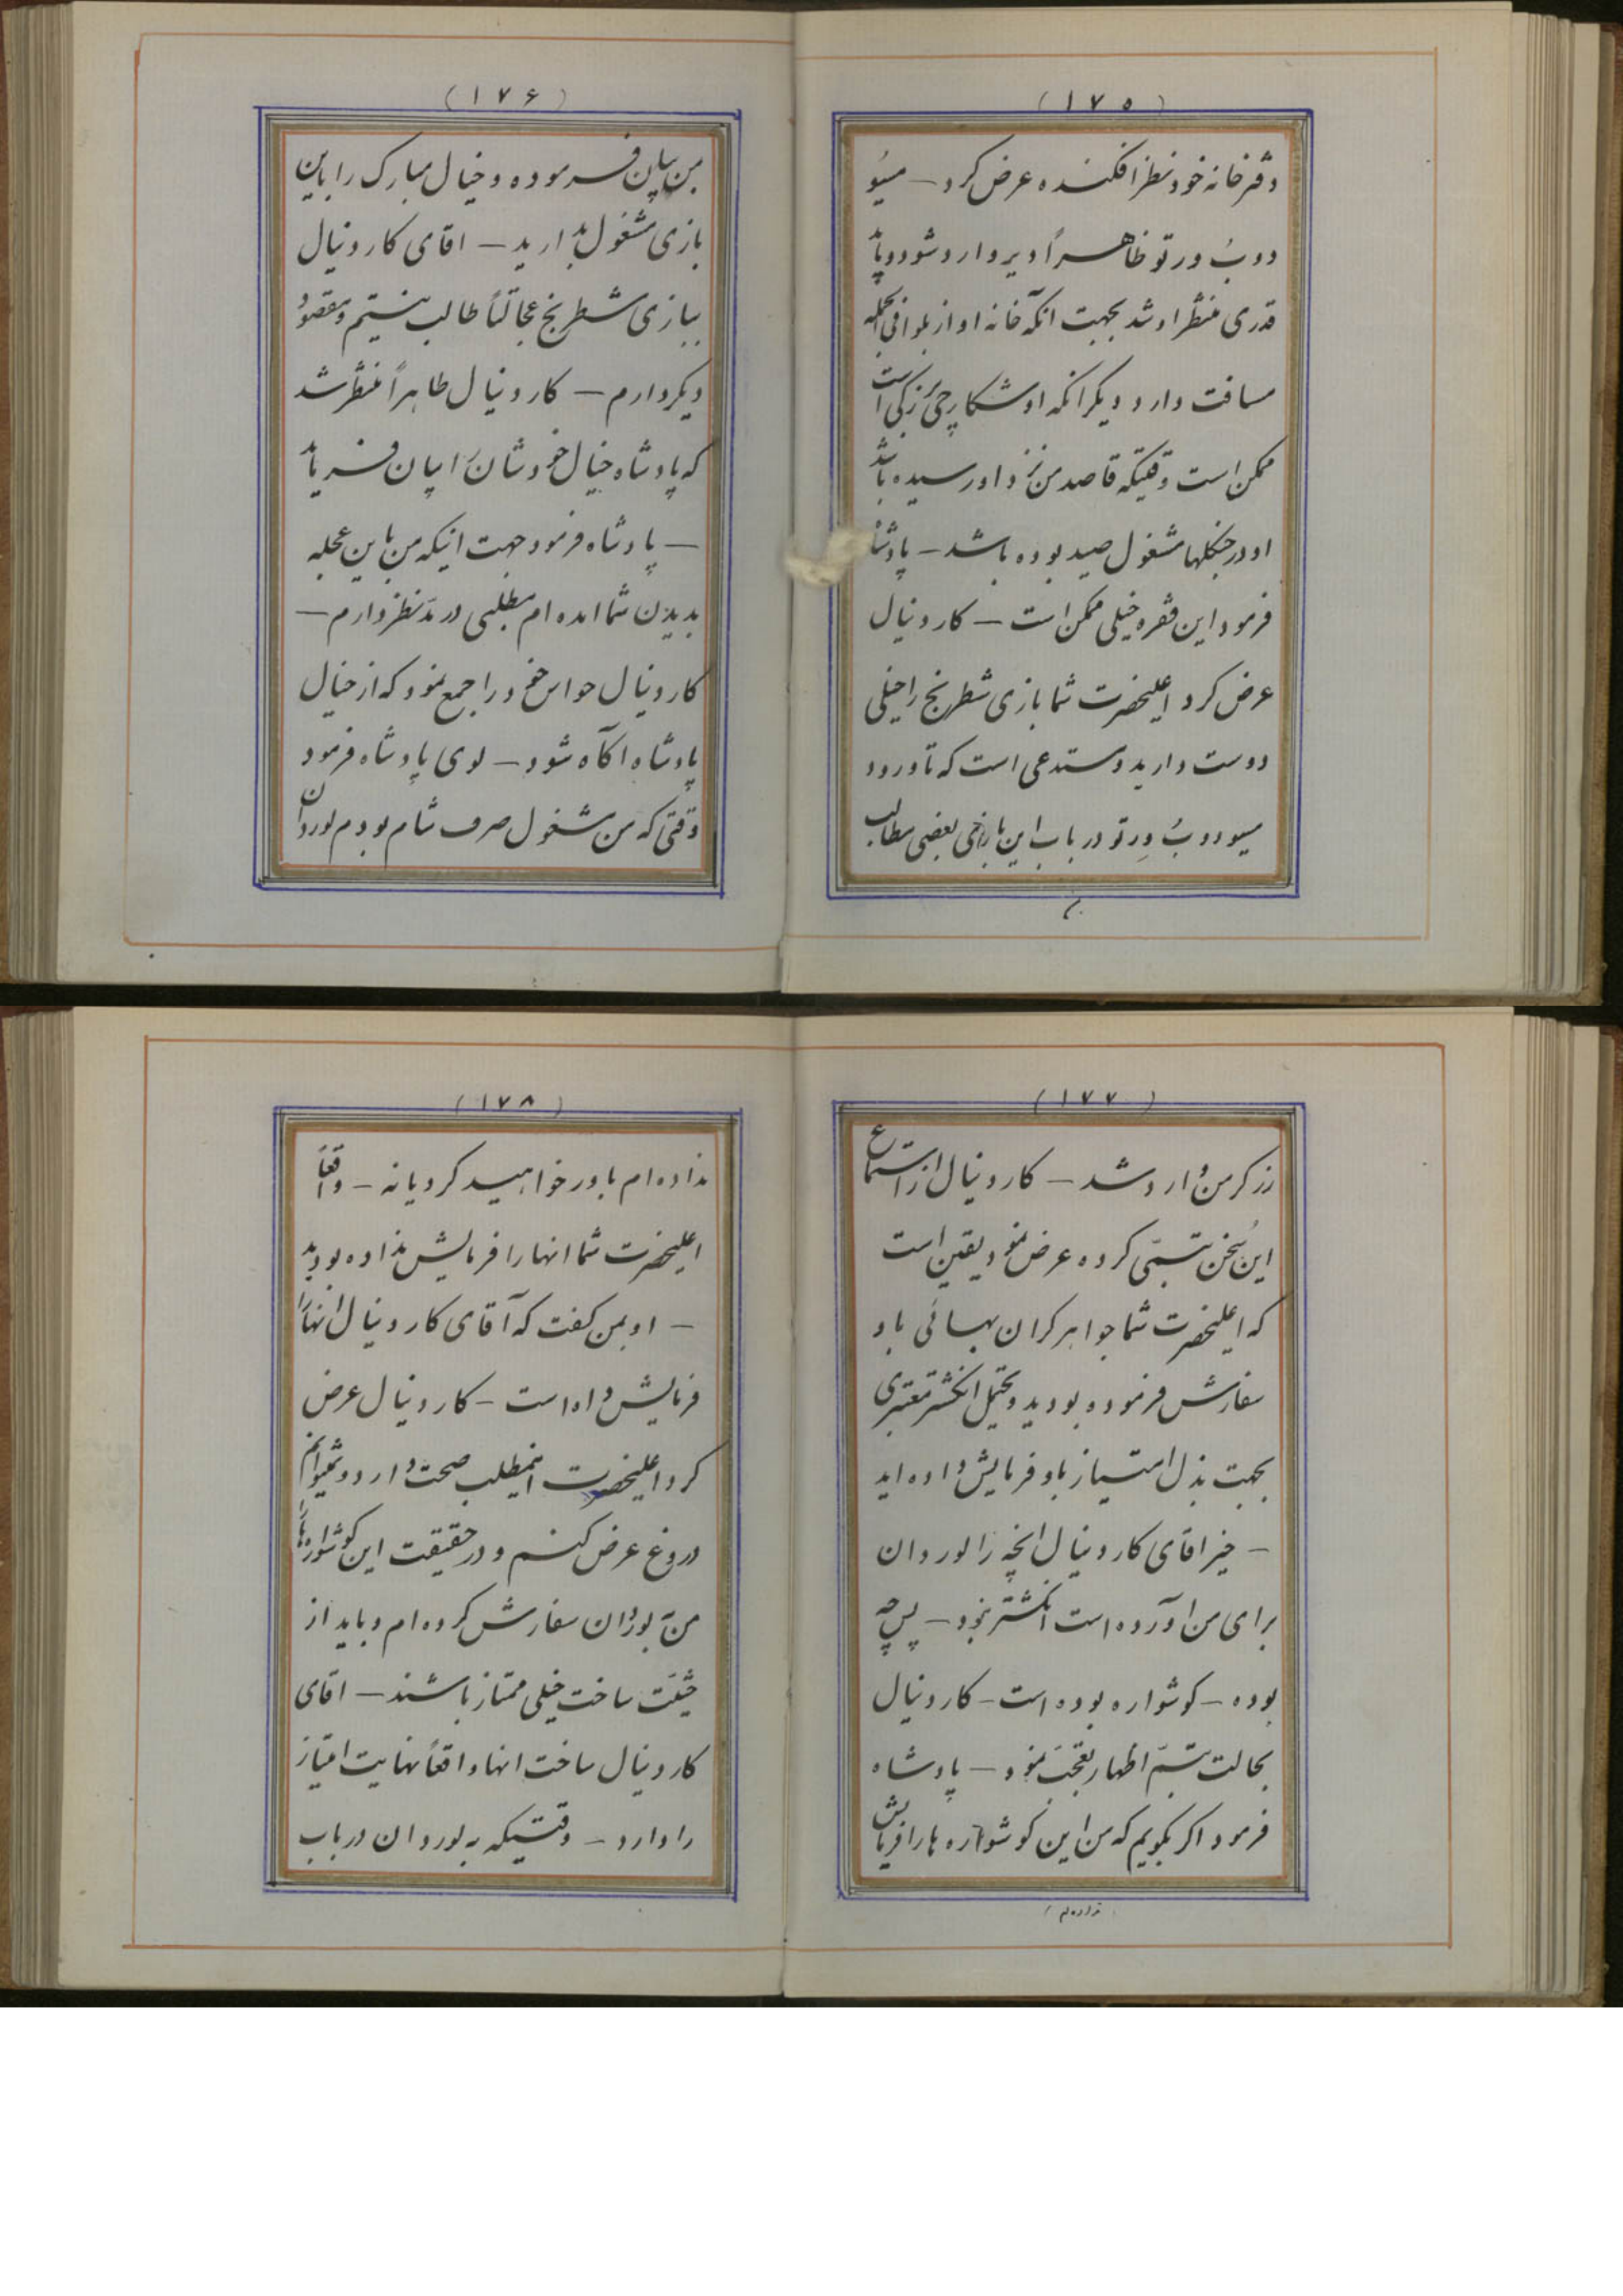 (۱۷۵)
دفتر خانه خود نظر افکنده عرض کرد – مسیو
دو بُ ورتو ظاهراً دیر وارد شود و باید
قدری منتظر او شد بجهت انکه خانه او از بلوا فی الجمله
مسافت دارد و دیکر انکه او شکارچی بزرکی است
ممکن است وقتیکه قاصد من نزد او رسیده باشد
او در جنکلها مشغول صید بوده باشد – پادشاه
فرمود این فقره خیلی ممکن است – کاردینال
عرض کرد اعلیحضرت شما بازی شطرنج را خیلی
دوست دارید مستدعی است که تا ورود
مسیو دو بُ ورتو در باب این بازی بعضی مطالب
(۱۷۶)
بمن بیان فرموده و خیال مبارک را باین
بازی مشغول بدارید – اقای کاردینال
ببازی شطرنج عجالتاً طالب نیستم و مقصود
دیکر دارم – کاردینال ظاهراً منتظر شد
که پادشاه خیال خودشان را بیان فرماید
– پادشاه فرمود جهت اینکه من باین عجله
بدیدن شما امده ام مطلبی در مدّ نظر دارم –
کاردینال حواس خود را جمع نمود که از خیال
پادشاه اکاه شود – لوی پادشاه فرمود
وقتی که من مشغول صرف شام بودم لوردان
(۱۷۷)
زرکر من وارد شد – کاردینال از استماع
این سُخن تبسّمی کرده عرض نمود یقین است
که اعلیحضرت شما جواهر کران بهائی باو
سفارش فرموده بودید و محتمل انکشتر معتبری
بجهت بذل امتیاز باو فرمایش داده اید
– خیر اقای کاردینال انچه را لوردان
برای من اورده است انکشتر نبود – پس چه
بوده – کوشواره بوده است – کاردینال
بحالت تبسّم اظهار تعجّب نمود – پادشاه
فرمود اکر بکویم که من این کوشواره ها را فرمایش
نداده ام
(۱۷۸)
نداده ام باور خواهید کرد یا نه – واقعاً
اعلیحضرت شما انها را فرمایش نداده بودید
– او بمن کفت که آقای کاردینال انها را
فرمایش داده است – کاردینال عرض
کرد اعلیحضرت اینمطلب صحت دارد و نمیتوانم
دروغ عرض کنم و در حقیقت این کوشواره ها را
من بلوردان سفارش کرده ام و باید از
حیثیّت ساخت خیلی ممتاز باشند – اقای
کاردینال ساخت انها واقعاً نهایت امتیاز
را دارد – وقتیکه به لوردان در باب